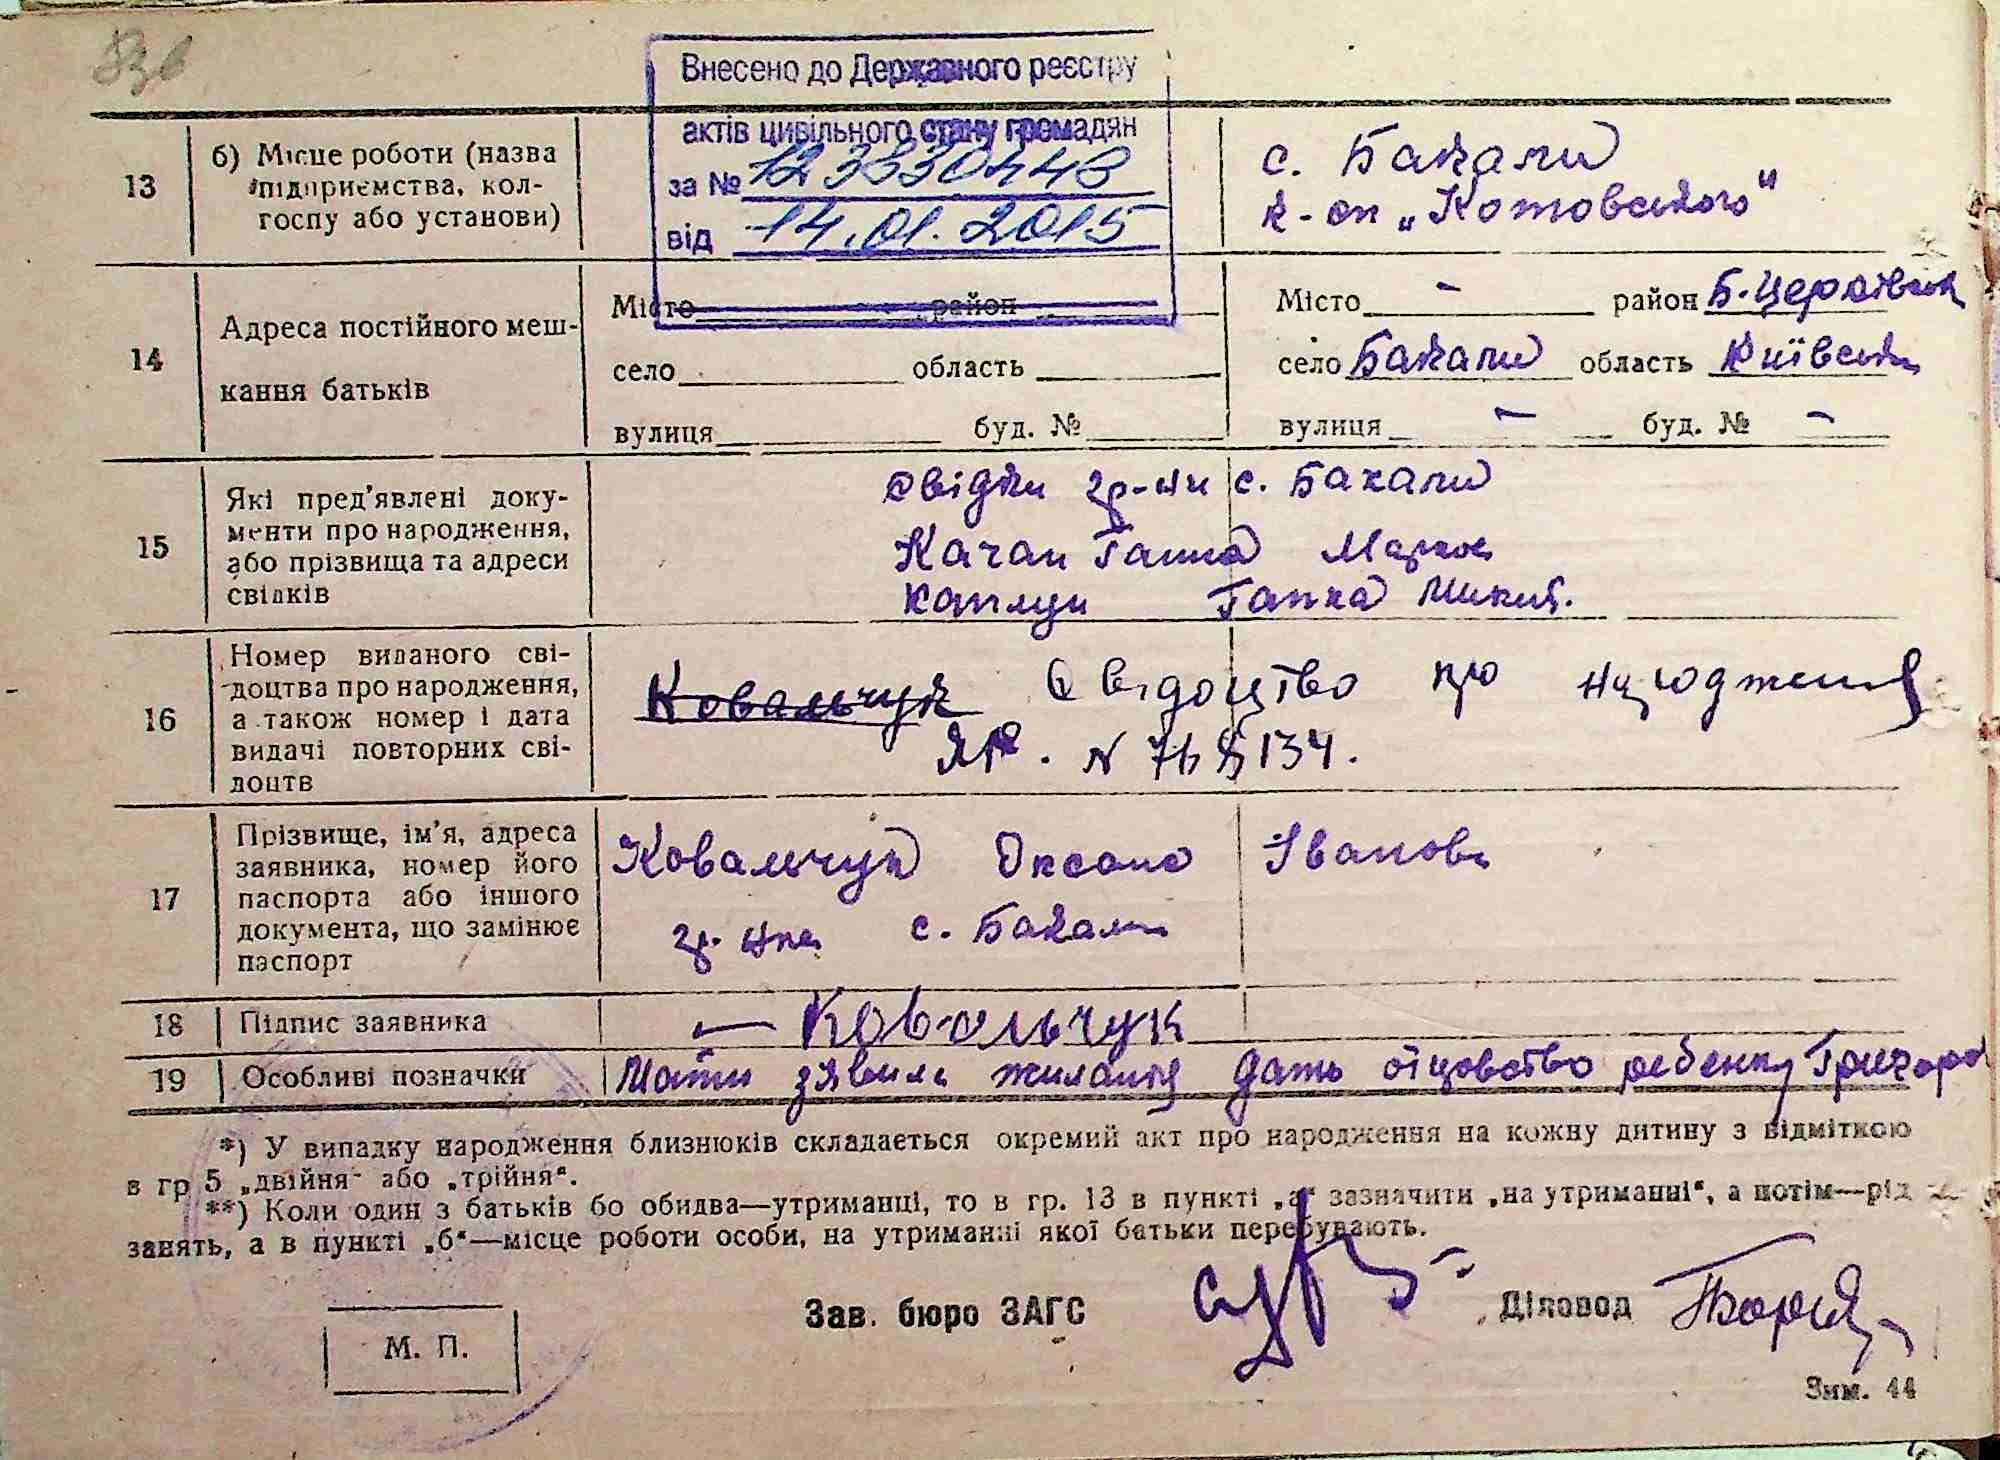 Внесено до Державного реєстру
актів цивільного стану громадян
за № 123330448
від 14.01.2015
13
б) Місце роботи (назва
підприємства, кол-
госпу або установи)
с. Бакали
к-сп „Котовського"
14
Адреса постійного меш-
кання батьків
Місто район
село область
вулиця буд. №
Місто - район Б-Церківськ
село Бакали область Київськ
вулиця - буд. № -
15
Які пред’явлені доку-
менти про народження,
або прізвища та адреси
свідків
Свідки гр-ни с. Бакали
Качан Ганна Марков
Гапка Микит.
16
Номер виданого сві-
доцтва про народження,
а також номер і дата
видачі повторних сві-
доцтв
Ковальчук Свідоцтво про народження
N 134.
17
Прізвище, ім’я, адреса
заявника, номер його
паспорта або іншого
документа, що замінює
паспорт
Ковальчук Оксана Іванов
гр-нка с. Бакали
18
Підпис заявника
— Ковальчук
19
Особливі позначки
Мати зявила желания дать отцовство ребенку Григоро
*) У випадку народження близнюків складається окремий акт про народження на кожну дитину з відміткою
в гр 5 „двійня“ або „трійня“.
**) Коли один з батьків бо обидва—утриманці, то в гр. 13 в пункті „а“ зазначити „на утриманні“, а потім—рід
занять, а в пункті „б“—місце роботи особи, на утриманні якої батьки перебувають.
Зав. бюро ЗАГС
Діловод
М. П.
Зим. 44